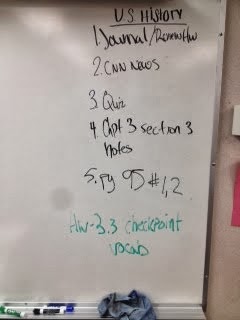 U.S History
1. Journal/Review Hw
2. CNN News
3. Quiz
4. Chpt 3 section 3
Notes
5. pg 95 #1,2
Hw-3.3 checkpoint
vocab